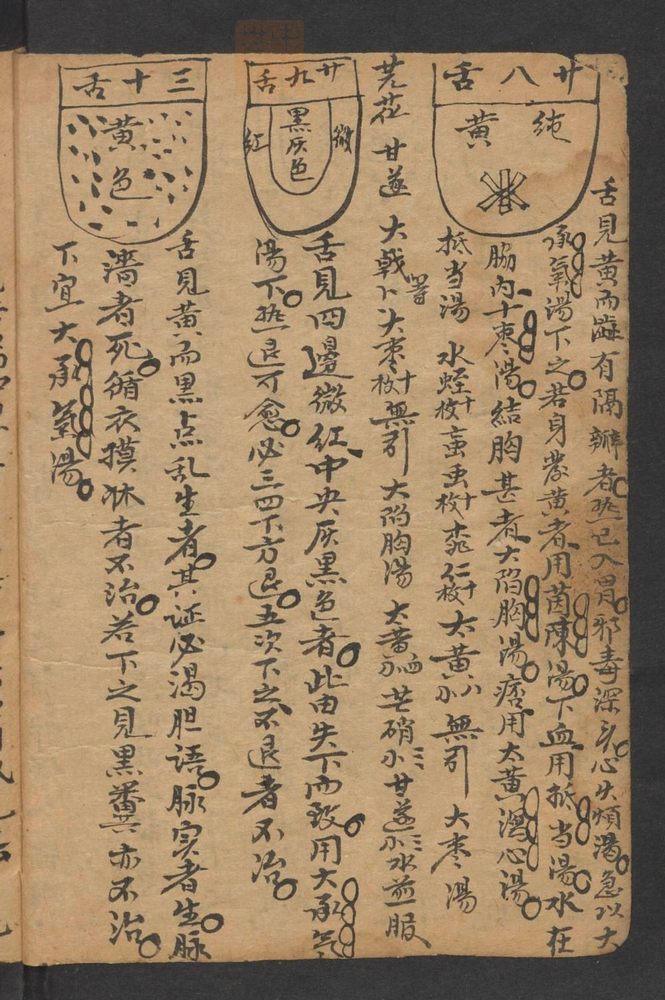 廿八舌
純黃
舌見黃而澁有隔瓣者熱已入胃邪毒深矣心火煩渴急以大
承氣湯下之若身發黃者用茵陳湯下血用抵当湯水在
脇內十枣湯結胸甚者大陷胸湯痞用大黃瀉心湯
抵当湯 水蛭十枚 䖟虫十枚 桃仁十枚 大黃 無引 大枣湯
芫花 甘遂 大戟等 大枣十枚 無引 大陷胸湯 大黃 芒硝 甘遂 水煎服
廿九舌
微紅
黑灰色
舌見四邊微紅中央灰黑色者此由失下而致用大承气
湯下熱退可愈必三四下方退五次下之不退者不治
三十舌
黃色
舌見黃而黑点乱生者其证必渴胆語脉实者生脉
濇者死循衣摸牀者不治若下之見黑糞亦不治
下宜大承氣湯